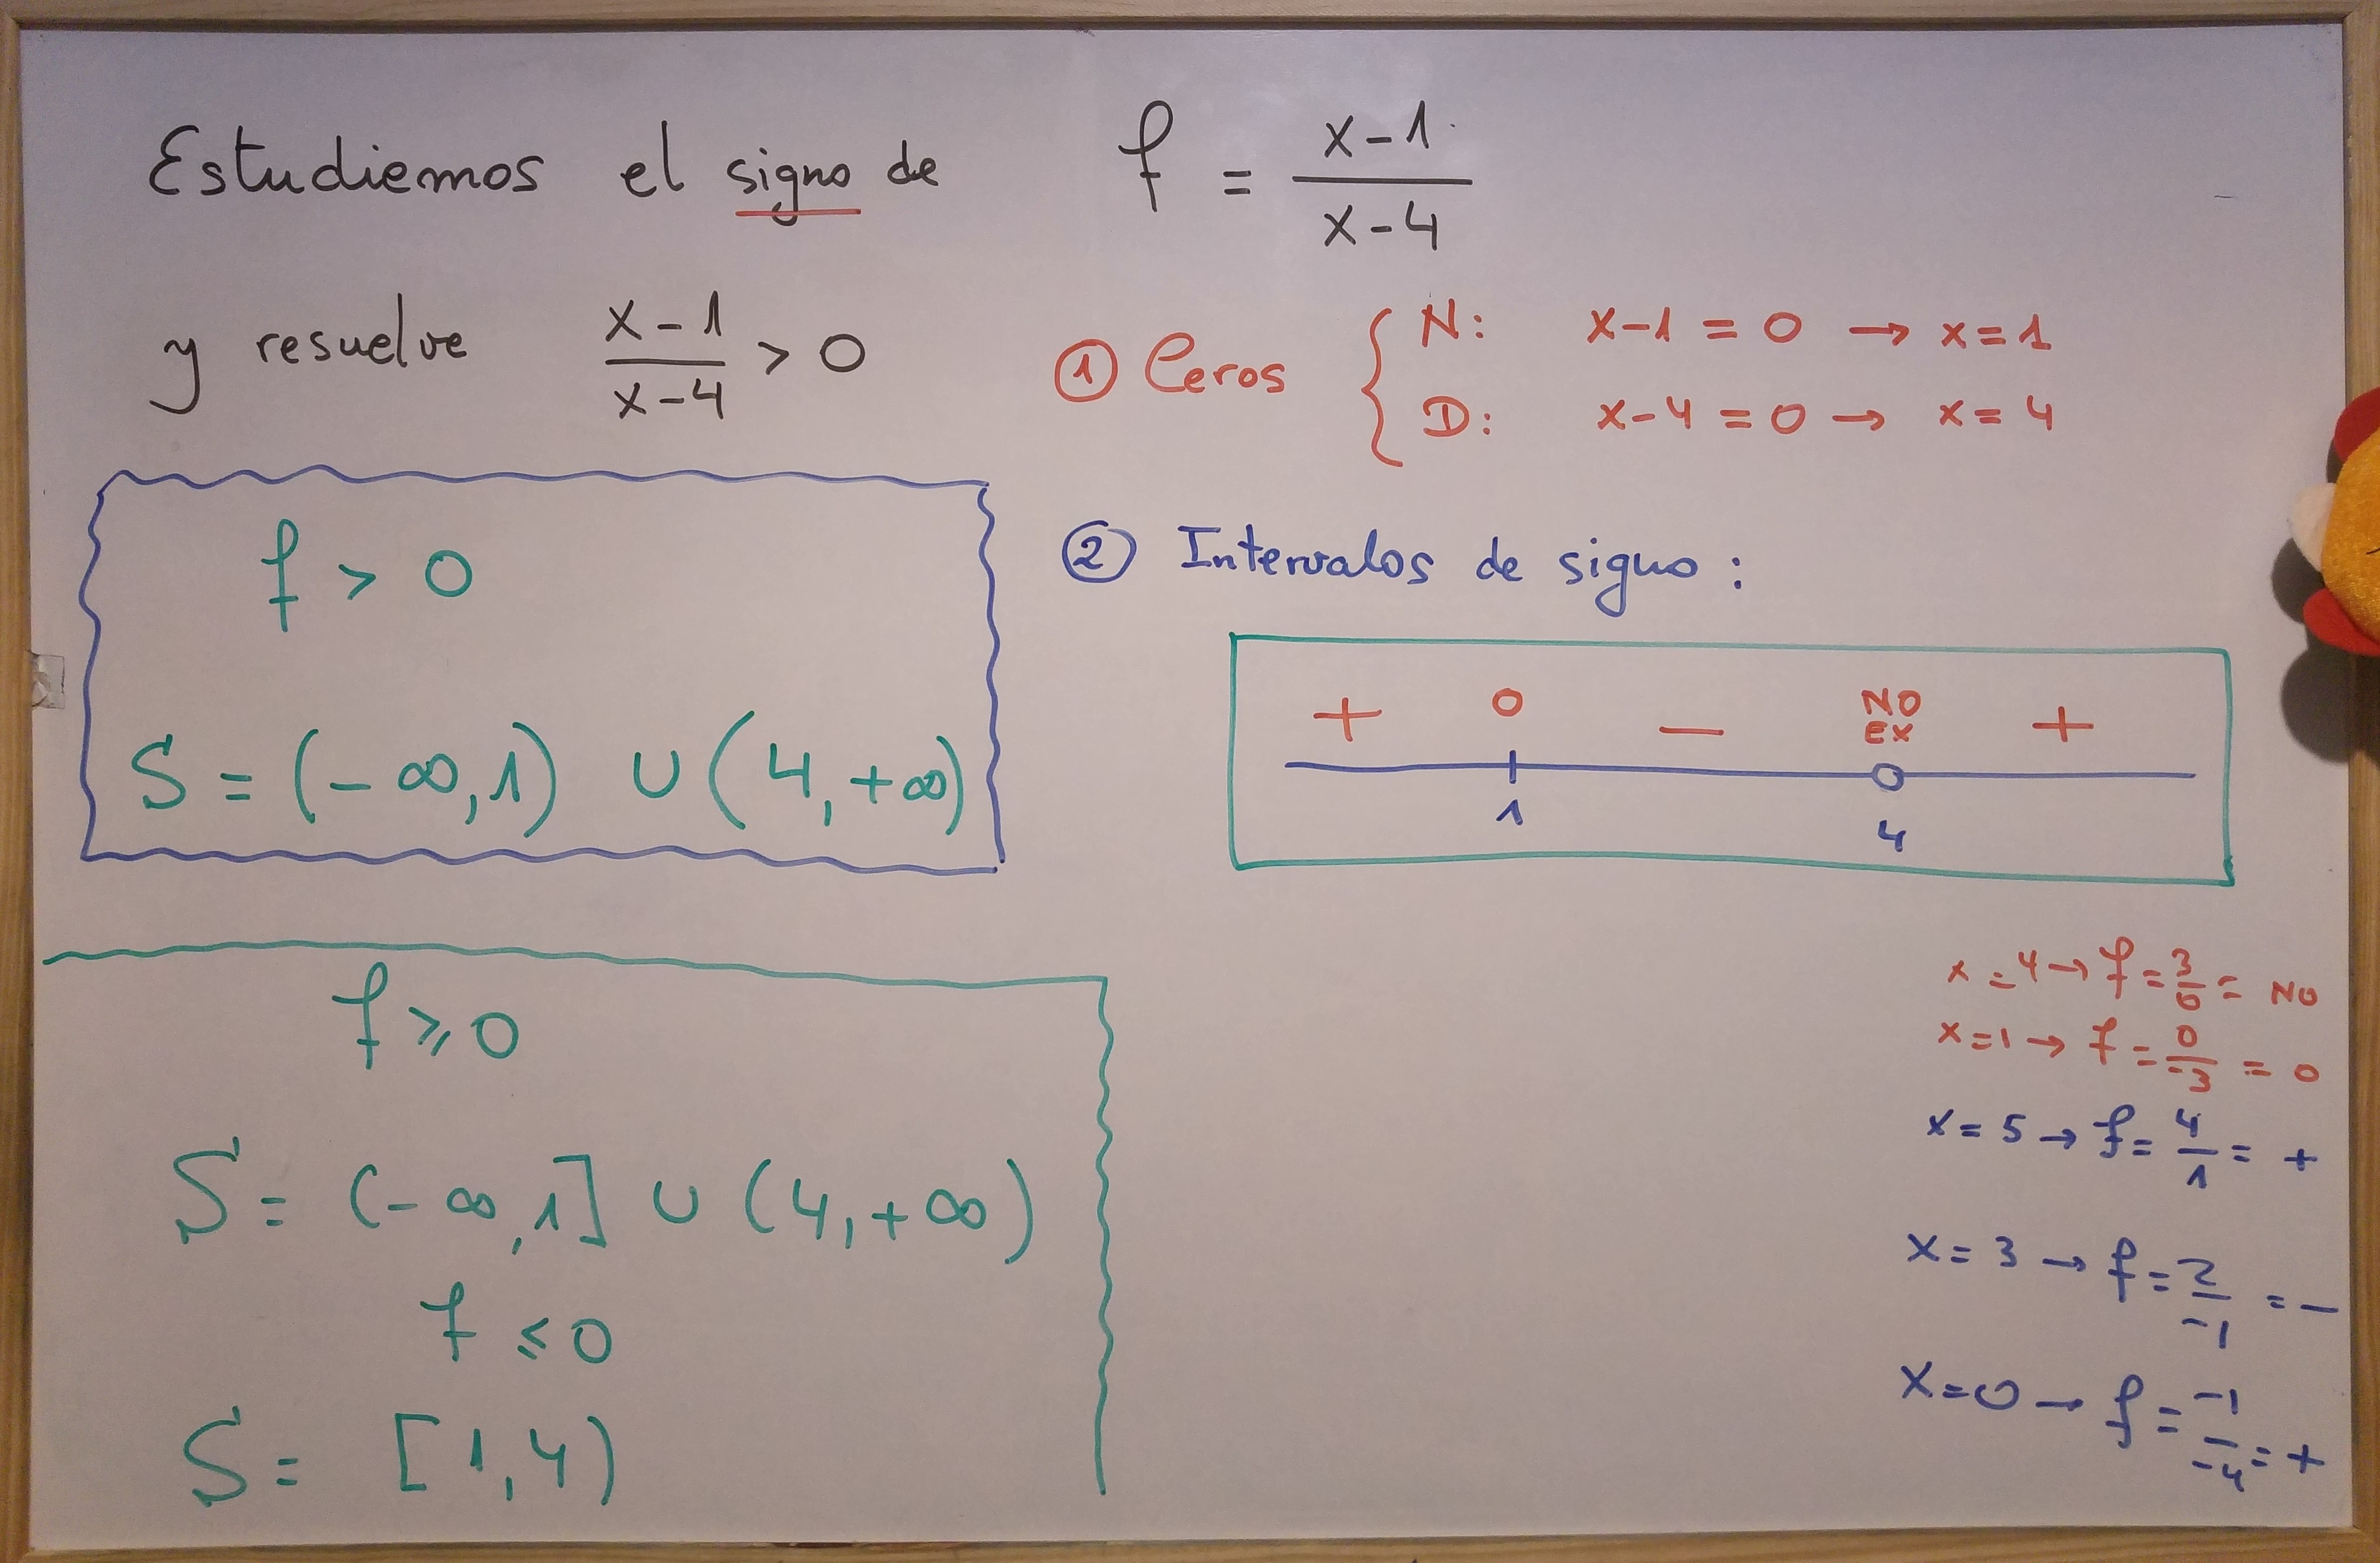 Estudiemos el signo de f = (x-1)/(x-4)
y resuelve (x-1)/(x-4) > 0
① Ceros { N: x-1 = 0 → x=1
D: x-4 = 0 → x=4
② Intervalos de signo:
+ 0 − NO EX +
1 4
f > 0
S = (-∞,1) ∪ (4,+∞)
f ⩾ 0
S = (-∞,1] ∪ (4,+∞)
f ⩽ 0
S = [1,4)
x=4 → f = 3/0 = NO
x=1 → f = 0/-3 = 0
x=5 → f = 4/1 = +
x=3 → f = 2/-1 = −
x=0 → f = -1/-4 = +